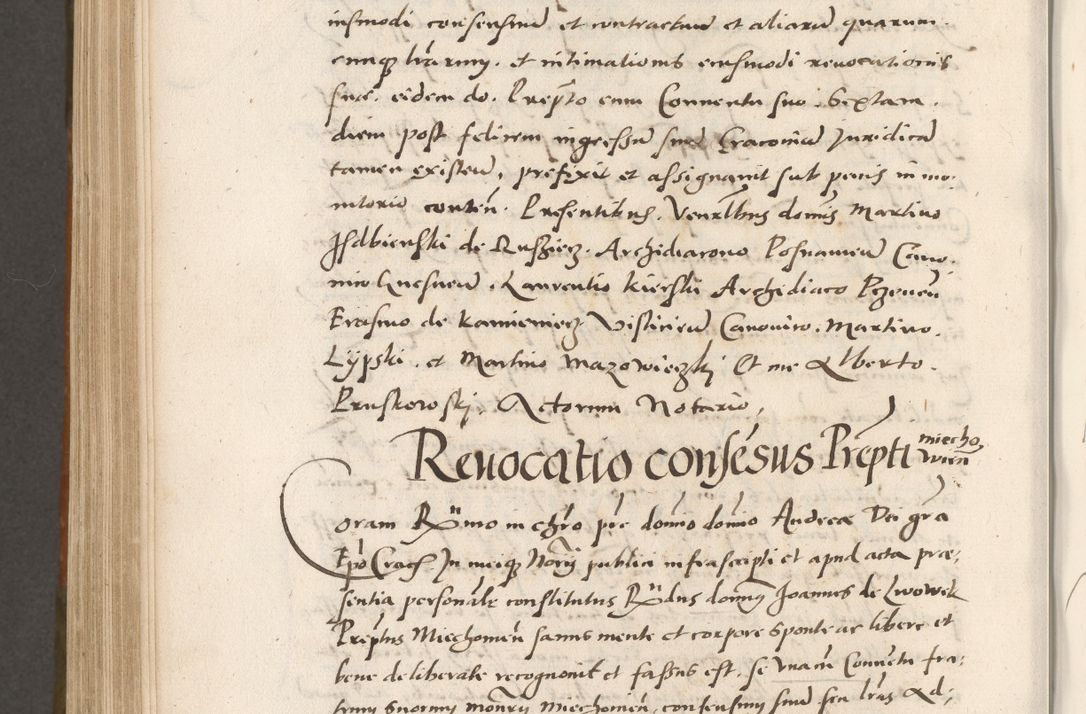 iusmodi consensum et contractum et aliarum quarum
cunque lrarum. et intimationis eiusmodi revocationis
sue. eidem do. Prepto cum Conventu suo. Sextam.
diem post felicem ingressum suum Cracoviam Juridicam
tamen existen, prefixit et assignavit sub penis in mo.
nitorio conten. Presentibus. Venrlbus domis Martino
Isdbienski de Rusziecz. Archidiacono Posnanien Cano.
nico Gnesnen. Laurentio Kierski Archidiaco Pczeven
Erasmo de Kamieniecz Visliciens Canonico. Martino.
Lÿpski. et Martino Mazowieczkj Et me Alberto.
Pruskowskj. Actorum Notario,
Revocatio consesus Prepti miecho,
vien
Coram Rmo in chro pre domio domio Andrea Dei gra
Epo Crac In meique Norij publici infrascripti et apud acta præ:
sentia personale constitutus Rndus domus Joannes de Lwowek
Preptus Miechomen sanus mente et corpore sponte ac libere et
bene deliberate recognovit et fassus est. se unacu Conventu fra:
trum suorum monrij Miechomien, consensum suum seu lras Ad: